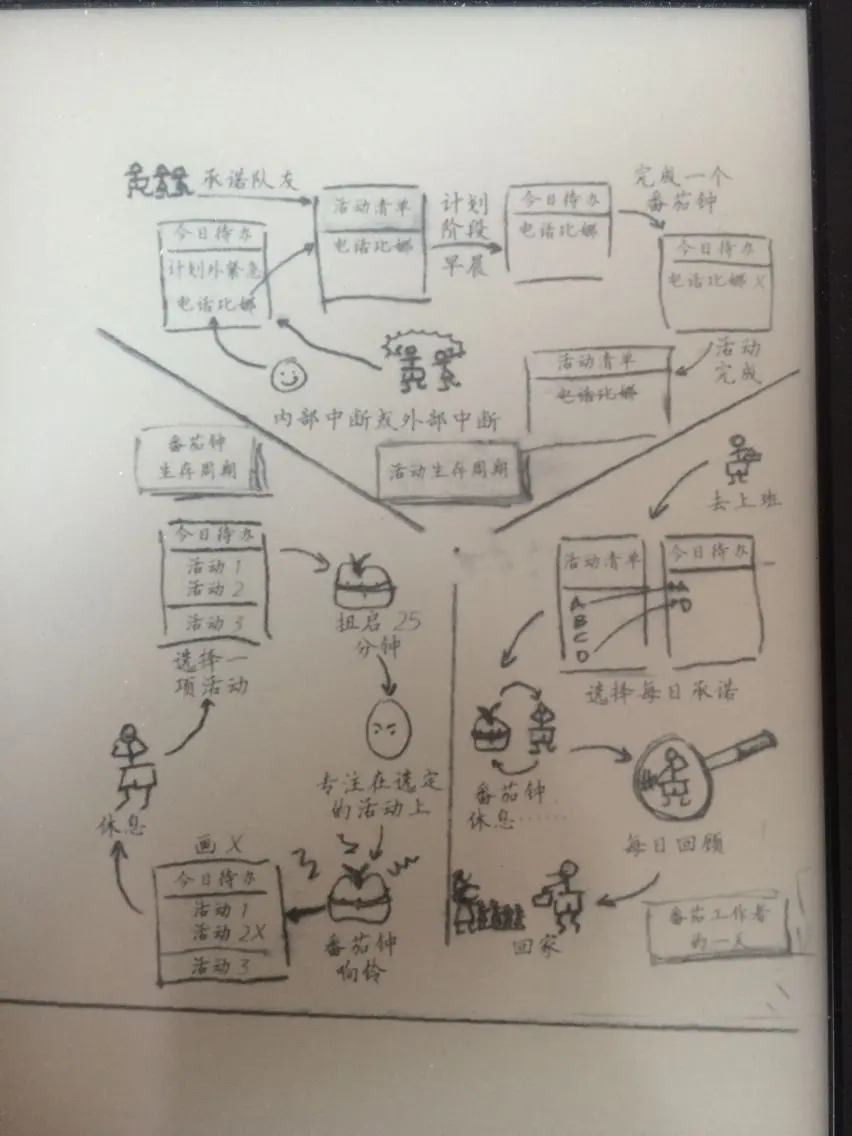 承诺队友
今日待办
计划外紧急
电话比娜
活动清单
电话比娜
计划
阶段
早晨
今日待办
电话比娜
完成一个
番茄钟
今日待办
电话比娜 X
活动
完成
活动清单
电话比娜
内部中断或外部中断
活动生存周期
番茄钟
生存周期
今日待办
活动 1
活动 2
活动 3
选择一
项活动
扭启 25
分钟
专注在选定
的活动上
番茄钟
响铃
画 X
今日待办
活动 1
活动 2X
活动 3
休息
去上班
活动清单
A
B
C
D
今日待办
A
D
选择每日承诺
番茄钟
休息……
每日回顾
回家
番茄工作者
的一天